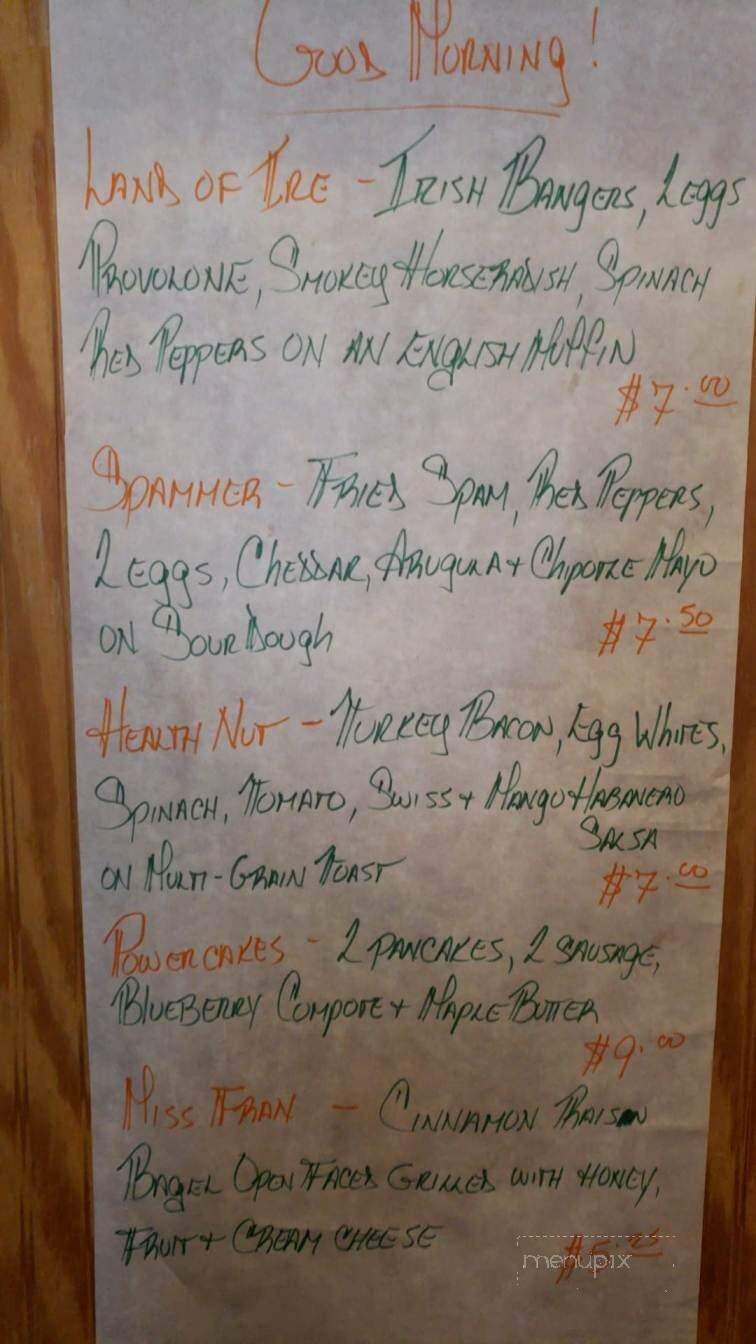 Good Morning!
Land of Ire - Irish Bangers, 2 eggs
Provolone, Smokey Horseradish, Spinach
Red Peppers on an English Muffin
$7.00
Spammer - Fried Spam, Red Peppers,
2 eggs, Cheddar, Arugula + Chipotle Mayo
on Sour Dough
$7.50
Health Nut - Turkey Bacon, Egg Whites,
Spinach, Tomato, Swiss + Mango Habanero
Salsa
on Multi-Grain Toast
$7.00
Powercakes - 2 pancakes, 2 sausage,
Blueberry Compote + Maple Butter
$9.00
Miss Fran - Cinnamon Raisin
Bagel Open Faced Grilled with Honey,
Fruit + Cream Cheese
menupix